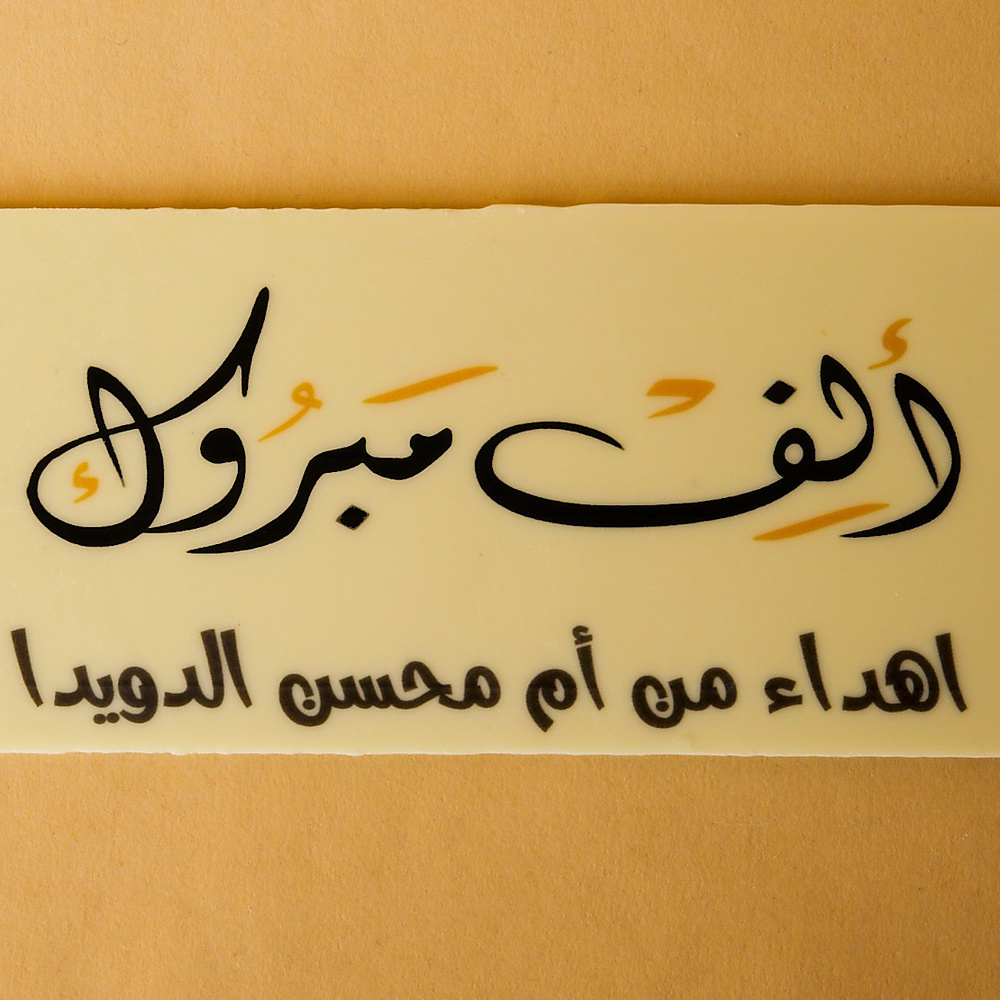 ألف مبروك
اهداء من أم محسن الدويدا